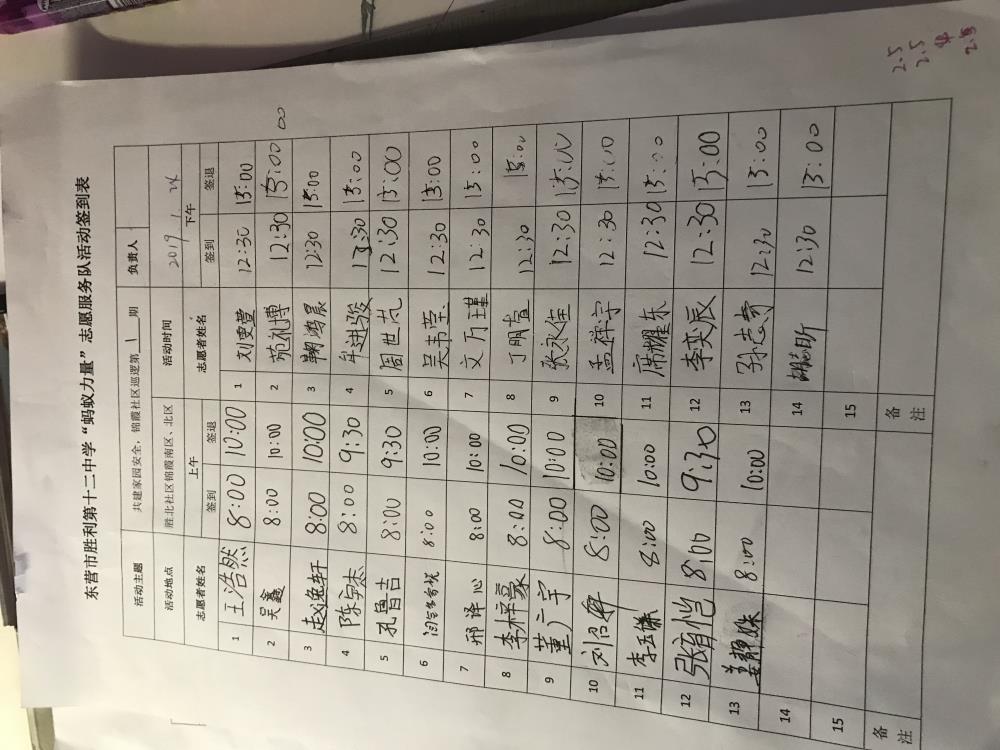 东营市胜利第十二中学“蚂蚁力量”志愿服务队活动签到表
活动主题 共建家园安全，锦霞社区巡逻第 1 期 负责人
活动地点 胜北社区锦霞南区、北区 活动时间 2019 1 24
志愿者姓名 上午 志愿者姓名 下午
签到 签退 签到 签退
1 王浩然 8:00 10:00 1 刘雯萱 12:30 15:00
2 吴鑫 8:00 10:00 2 苑礼博 12:30 15:00
3 赵逸轩 8:00 10:00 3 鞠鸿晨 12:30 15:00
4 陈宾杰 8:00 9:30 4 牟进骏 13:30 15:00
5 孔昌吉 8:00 9:30 5 周世芃 12:30 15:00
6 8:00 10:00 6 吴韦莹 12:30 15:00
7 邢译心 8:00 10:00 7 文万瑾 12:30 15:00
8 李梓豪 8:00 10:00 8 丁明萱 12:30 15:00
9 董广宇 8:00 10:00 9 张永佳 12:30 15:00
10 8:00 10:00 10 孟祥宇 12:30 15:00
11 8:00 10:00 11 席耀东 12:30 15:00
12 8:00 9:30 12 李奕辰 12:30 15:00
13 8:00 10:00 13 孙志豪 12:30 15:00
14 14 12:30 15:00
15 15
备注 备注
2.5
2.5
2.5